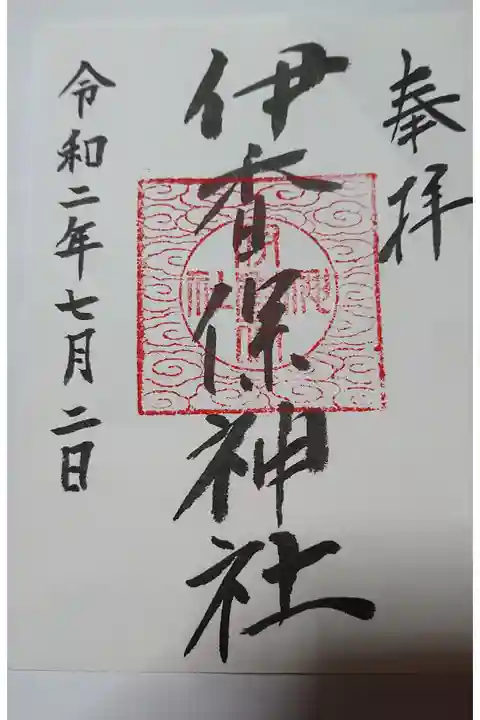 奉拝
伊香保神社
令和二年七月二日